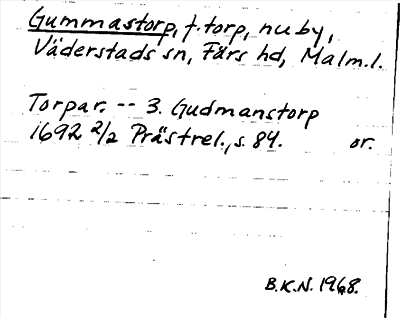 Gummastorp, f. torp, nu by,
Väderstads sn, Färs hd, Malm. l.
Torpar. -- 3. Gudmanstorp
1692 2/2 Prästrel., s. 84. or.
B.K.N. 1968.